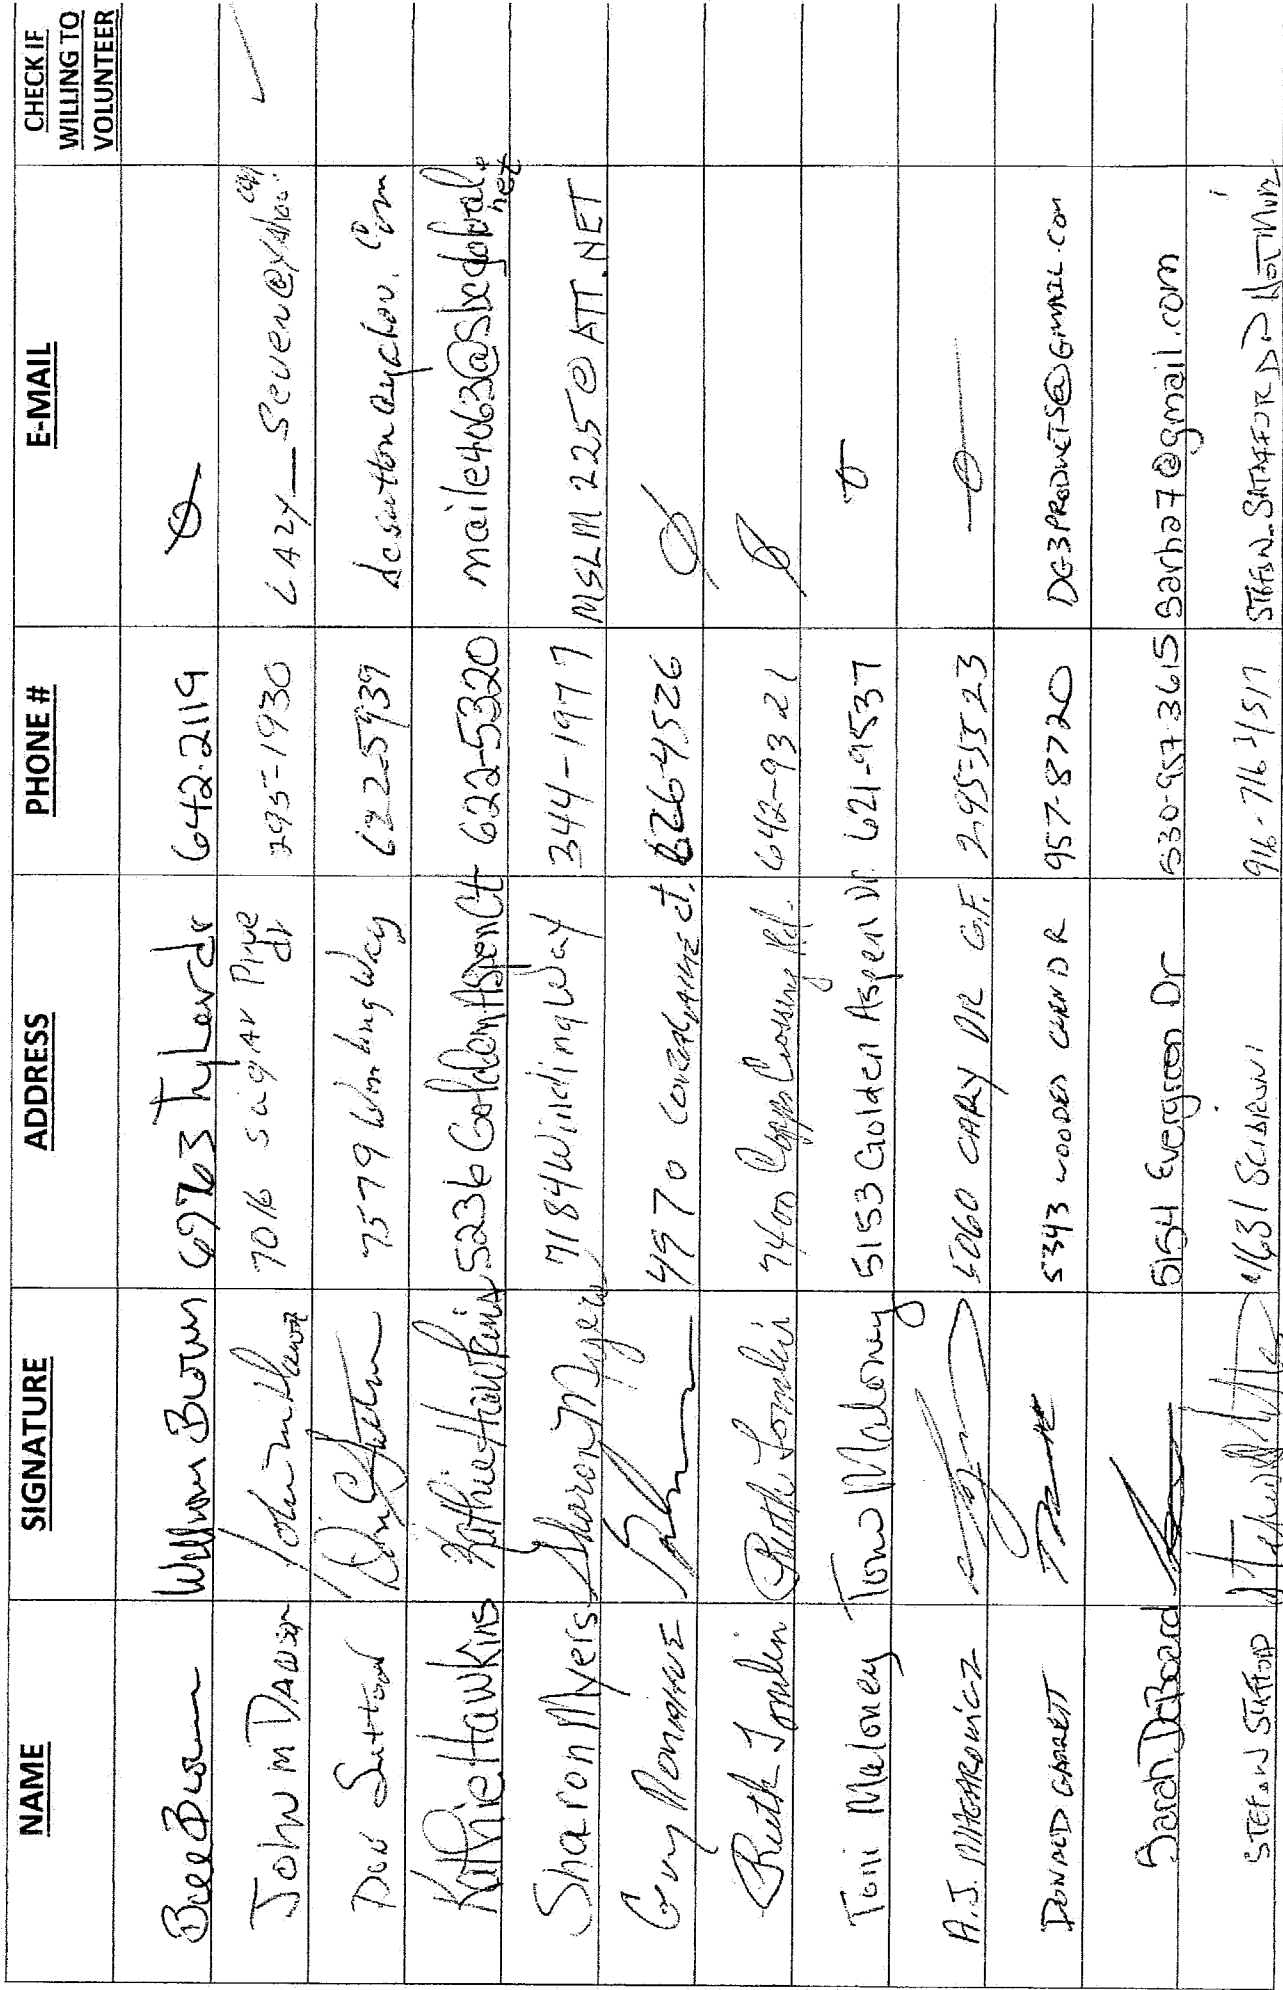 NAME SIGNATURE ADDRESS PHONE # E-MAIL CHECK IF WILLING TO VOLUNTEER
Bill Brown William Brown 6963 Tyler dr 642-2119 Ø
John M Dawson John M 7016 Sugar Pine dr 295-1930 LAZY_Seven@YAhoo.com ✓
Don Sutton Don Sutton 7579 Winding Way 622-5939 dcsutton@yahoo.com
Kathie Hawkins Kathie Hawkins 5236 Golden Aspen Ct 622-5320 maile4063@sbcglobal.net
Sharon Myers Sharon Myers 7184 Winding Way 344-1977 MSLM225@ATT.NET
Guy Donahue 4970 ct. 6264526 Ø
Ruth Tomlin Ruth Tomlin 7400 Crossing Rd. 642-9321 Ø
Toni Maloney Toni Maloney 5153 Golden Aspen Dr 621-9537 Ø
A.J. 5060 CARY DR G.F. 295-3523 Ø
DONALD GARRETT 5343 WOODED GLEN DR 957-8720 DG3PRODUCTS@GMAIL.COM
Sarah DeBoard 5154 Evergreen Dr 530-957-3615 sarha7@gmail.com
STEFAN STAFFORD 4631 916-716-4517